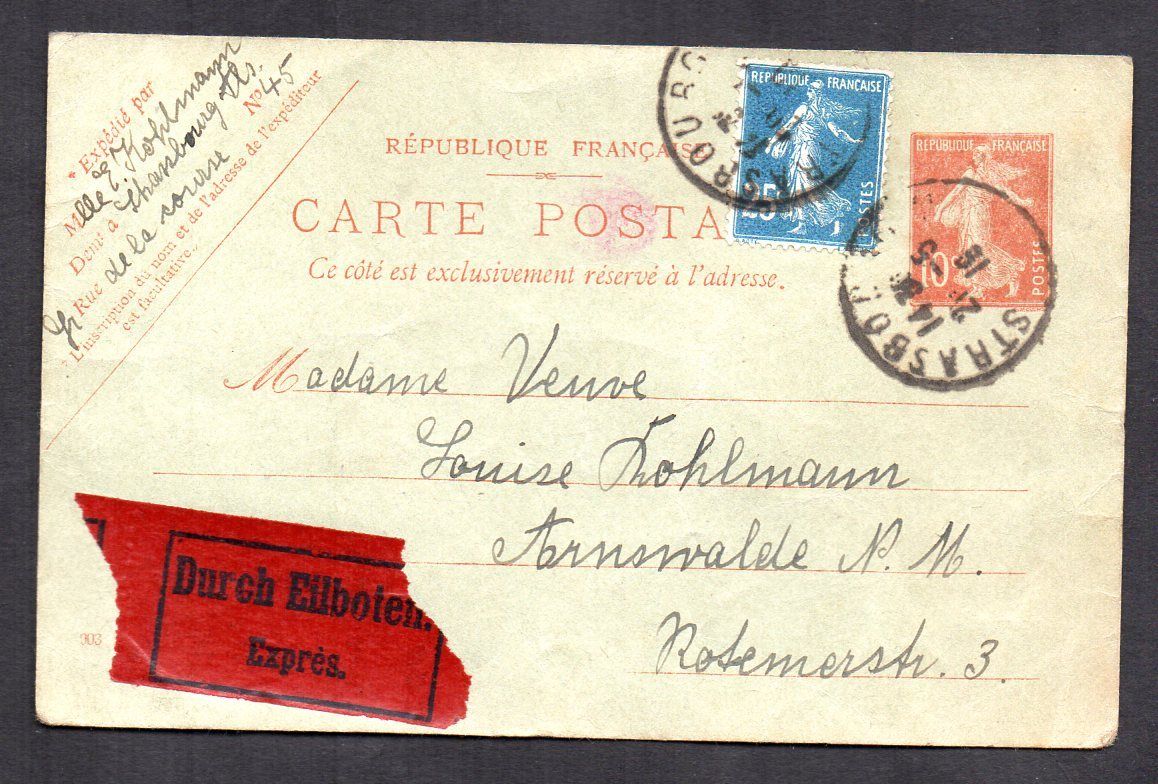 Expédié par
Mlle J. Kohlmann
Demt à Strasbourg Els.
Gr Rue de la course Nº 45
"L'inscription du nom et de l'adresse de l'expéditeur
est facultative."
RÉPUBLIQUE FRANÇAIS
CARTE POSTA
Ce côté est exclusivement réservé à l'adresse.
REPUBLIQUE FRANÇAISE
25
POSTES
REPUBLIQUE FRANÇAISE
10
POSTES
STRASBO
14
21 -5
19
Madame Veuve
Louise Kohlmann
Arnswalde N. M.
Rotemerstr. 3.
Durch Eilboten.
Exprès.
903